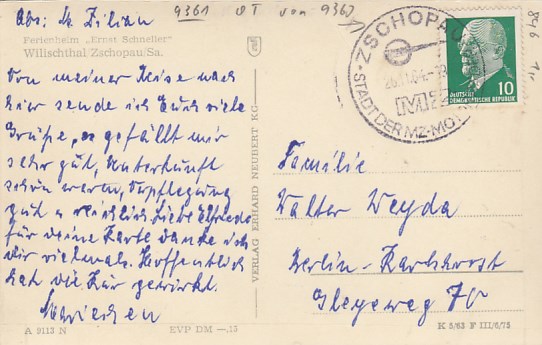 Abs: M. Zilian
9361 QT von 9362
846
Ferienheim „Ernst Schneller“
Wilischthal Zschopau/Sa.
Von meiner Reise nach
hier sende ich Euch viele
Grüße, es gefällt mir
sehr gut, Unterkunft
schön warm, Verpflegung
gut u reichlich Liebe Elfriede
für deine Karte danke ich
dir vielmals. Hoffentlich
hat die Kur gewirkt.
Mariechen
VERLAG ERHARD NEUBERT KG
ZSCHOPAU
MZ
STADT DER MZ-MOT
DEUTSCHE
DEMOKRATISCHE REPUBLIK
10
Familie
Walter Weyda
Berlin-Karlshorst
70
A 9113 N
EVP DM —.15
K 5/63 F III/6/75